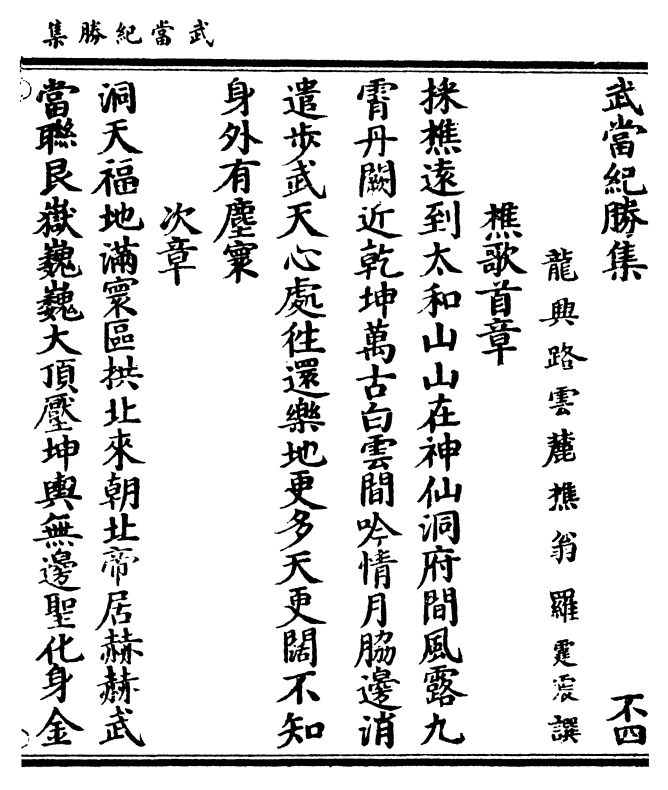 武當紀勝集
武當紀勝集 不四
龍興路雲麓樵翁羅霆震譔
樵歌首章
採樵遠到太和山山在神仙洞府間風露九
霄丹闕近乾坤萬古白雲間吟情月脇邊消
遣步武天心處徃還樂地更多天更闊不知
身外有塵寰
次章
洞天福地滿寰區拱北來朝北帝居赫赫武
當聯艮嶽巍巍大頂壓坤輿無邊聖化身金